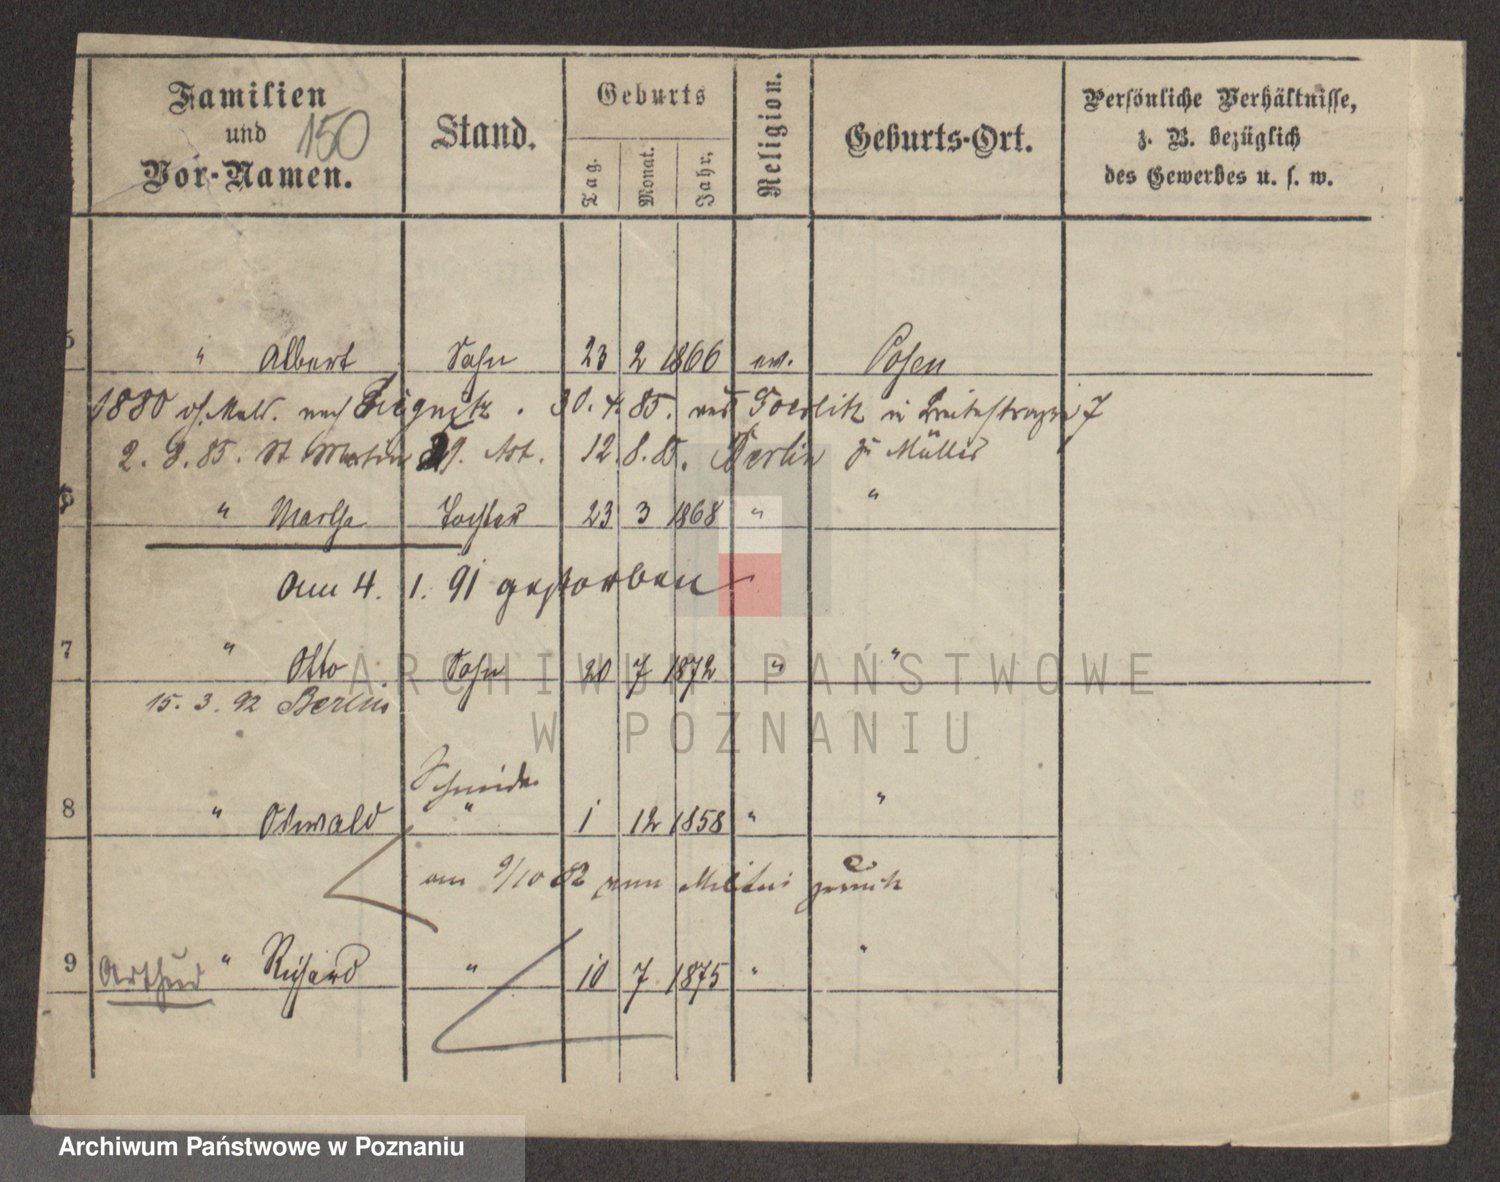 Familien
und
Vor-Namen.
150
Stand.
Geburts
Tag.
Monat.
Jahr.
Religion.
Geburts-Ort.
Persönliche Verhältnisse,
z. B. bezüglich
des Gewerbes u. s. w.
" Albert Sohn 23 2 1866 ev. Posen
1880 nach Liegnitz. 30. 4. 85. Goerlitz in Breitestrasse 7
2. 8. 85. St Martin 12. 8. 85. Berlin zu Müller
6 " Martha Tochter 23 3 1868 " "
Am 4. 1. 91 gestorben
7 " Otto Sohn 20 7 1872 " "
15. 3. 92 Berlin
Schneider
8 " Oswald " 1 12 1858 " "
am 9/10 82 vom Militär zurück
9 Arthur " Richard " 10 7 1875 " "
ARCHIWUM PAŃSTWOWE
W POZNANIU
Archiwum Państwowe w Poznaniu